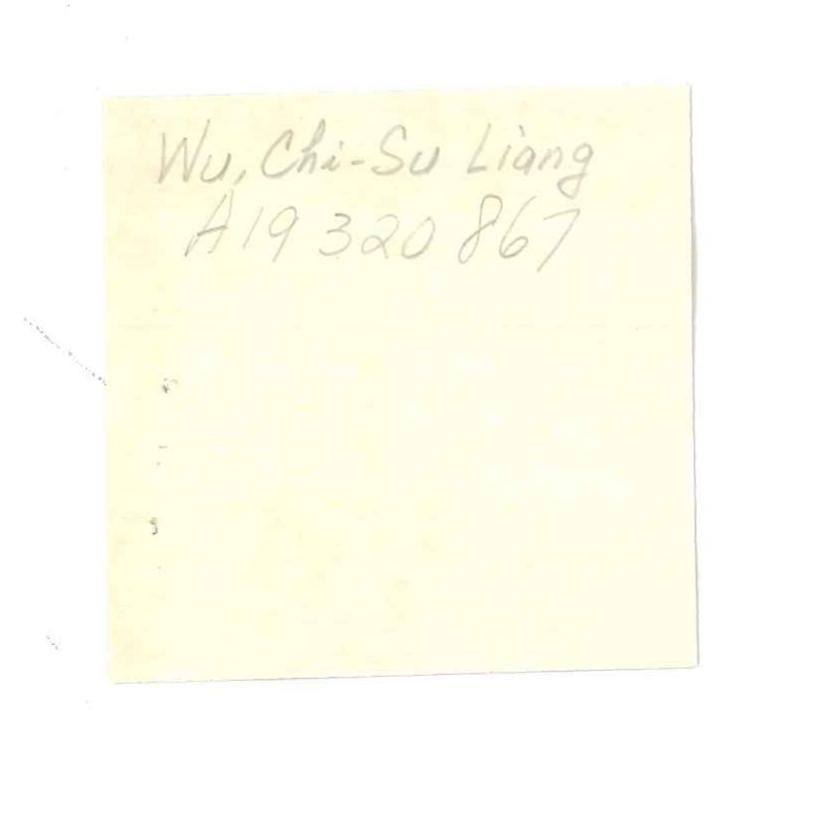 Wu, Chi-Su Liang
A19 320 867